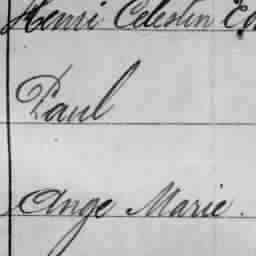 Henri Celestin
Paul
Ange Marie.